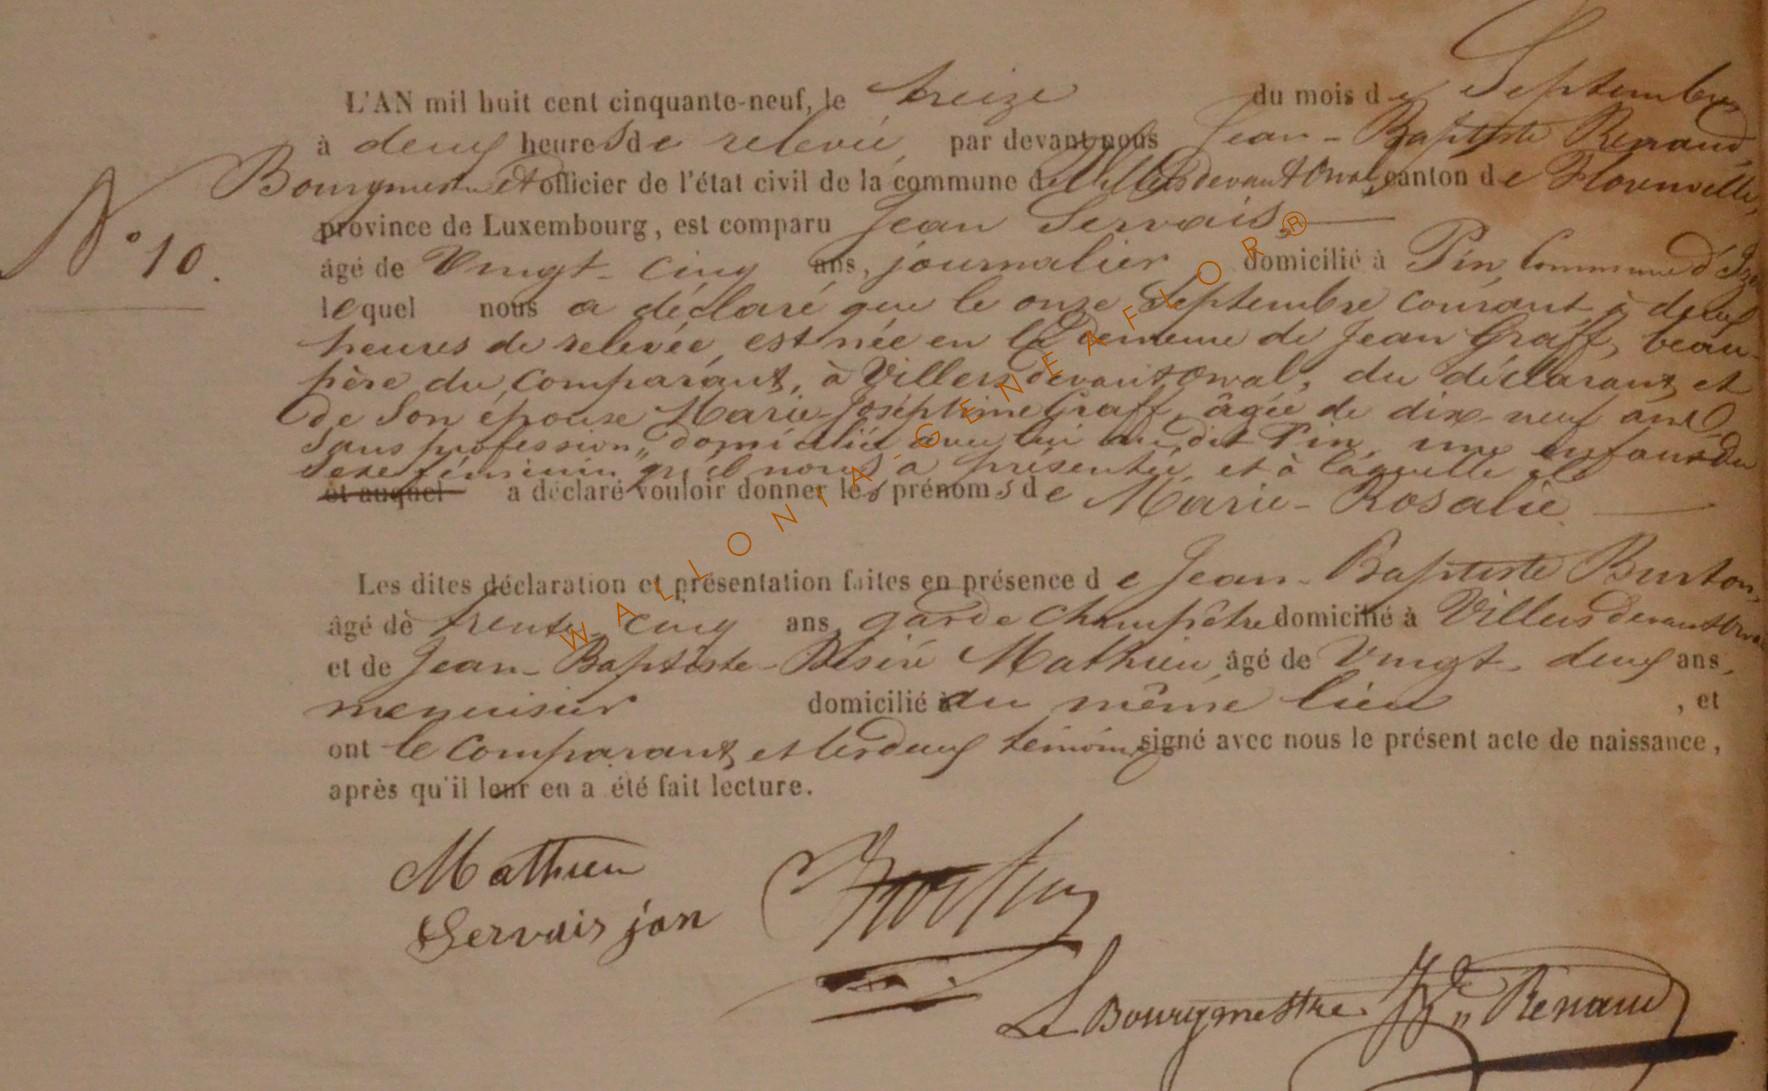 L'AN mil huit cent cinquante-neuf, le treize du mois de Septembre,
à deux heures de relevée, par devant nous Jean-Baptiste Renaud,
Bourgmestre et officier de l'état civil de la commune de Villers devant Orval, canton de Florenville,
province de Luxembourg, est comparu Jean Servais,
N° 10.
âgé de Vingt-cinq ans, journalier domicilié à Pin, Commune d'Izel
lequel nous a déclaré que le onze Septembre courant, à deux
heures de relevée, est née en la demeure de Jean Graff, beau-
père du Comparant, à Villers devant Orval, du déclarant, et
de son épouse Marie-Joséphine Graff, âgée de dix-neuf ans,
sans profession, domiciliée avec lui au dit Pin, une enfant du
sexe féminin qu'il nous a présentée, et à laquelle il
et auquel a déclaré vouloir donner les prénoms de Marie-Rosalie
Les dites déclaration et présentation faites en présence de Jean-Baptiste Burton,
âgé de trente-cinq ans, garde Champêtre domicilié à Villers devant Orval
et de Jean-Baptiste-Désiré Mathieu, âgé de Vingt-deux ans,
menuisier domicilié à du même lieu , et
ont le Comparant, et les deux témoins signé avec nous le présent acte de naissance,
après qu'il leur en a été fait lecture.
Mathieu
Servais jan
Le Bourgmestre. Renaud
WALLONIA-GENEAFLOR®